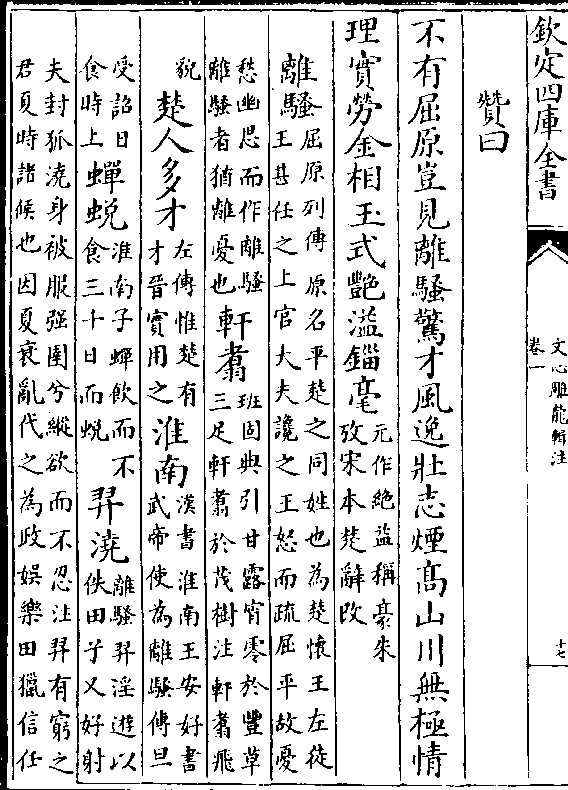 欽定四庫全書
文心雕龍輯注
卷一
十七
贊曰
不有屈原豈見離騷驚才風逸壯志煙髙山川無極情
理實勞金相玉式艷溢錙毫
元作絶益稱豪朱
攷宋本楚辭改
離騷
屈原列傳原名平楚之同姓也為楚懷王左徒
王甚任之上官大夫讒之王怒而疏屈平故憂
愁幽思而作離騷
離騷者猶離憂也
軒翥
班固典引甘露宵零於豐草
三足軒翥於茂樹注軒翥飛
貌
楚人多才
左傳惟楚有
才晉實用之
淮南
漢書淮南王安好書
武帝使為離騷傳旦
受詔日
食時上
蟬蛻
淮南子蟬飲而不
食三十日而蛻
羿澆
離騷羿淫遊以
佚田兮又好射
夫封狐澆身被服强圉兮縱欲而不忍注羿有窮之
君夏時諸候也因夏衰亂代之為政娛樂田獵信任